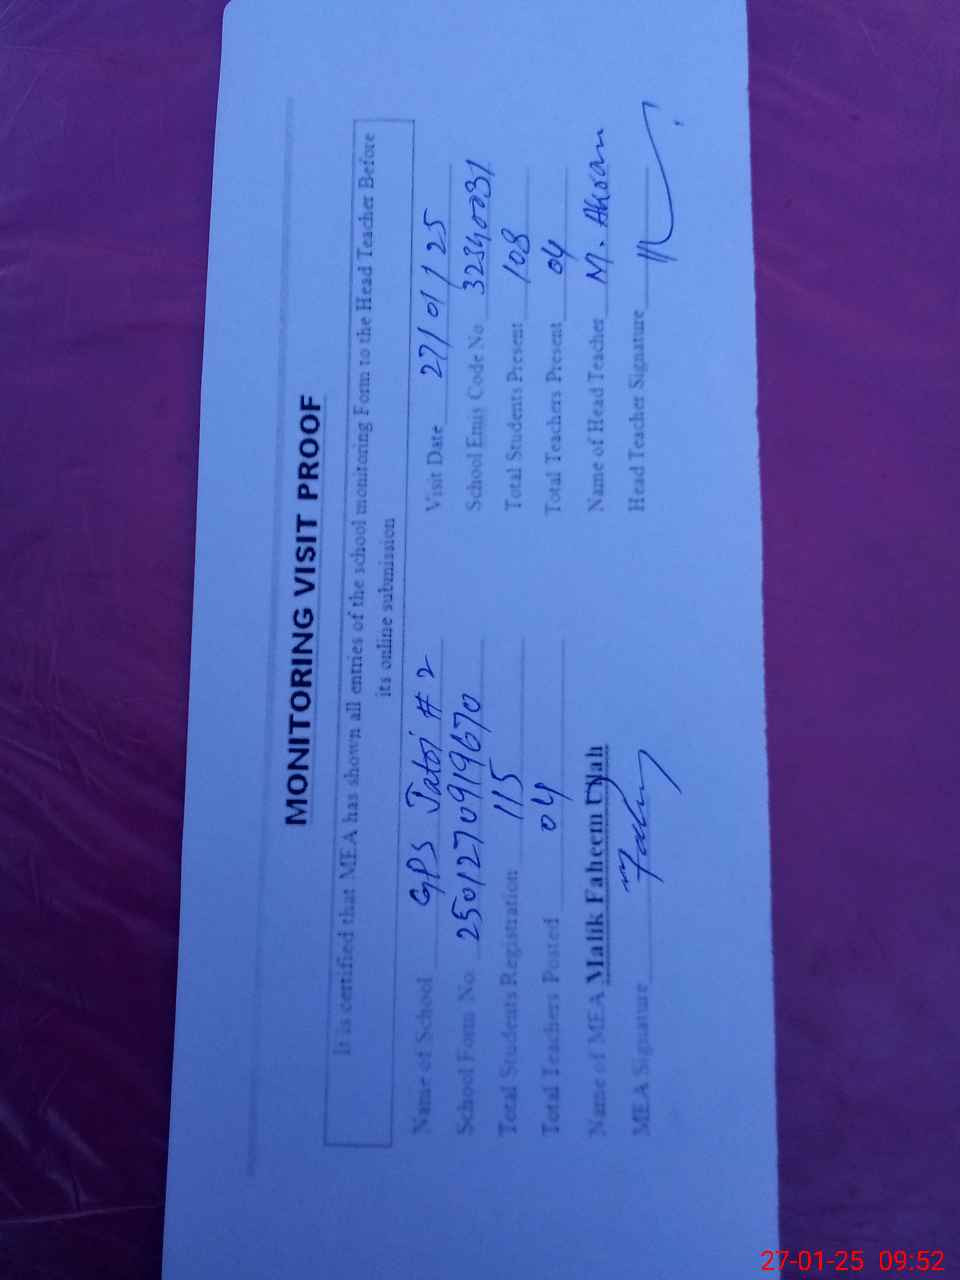 MONITORING VISIT PROOF
It is certified that MEA has shown all entries of the school monitoring Form to the Head Teacher Before
its online submission
Name of School GPS Jatoi # 2 Visit Date 27/01/25
School Form No. 2501270919670 School Emis Code No 32340031
Total Students Registration 115 Total Students Present 108
Total Teachers Posted 04 Total Teachers Present 04
Name of MEA Malik Faheem Ullah Name of Head Teacher M. Akram
MEA Signature Head Teacher Signature
27-01-25 09:52